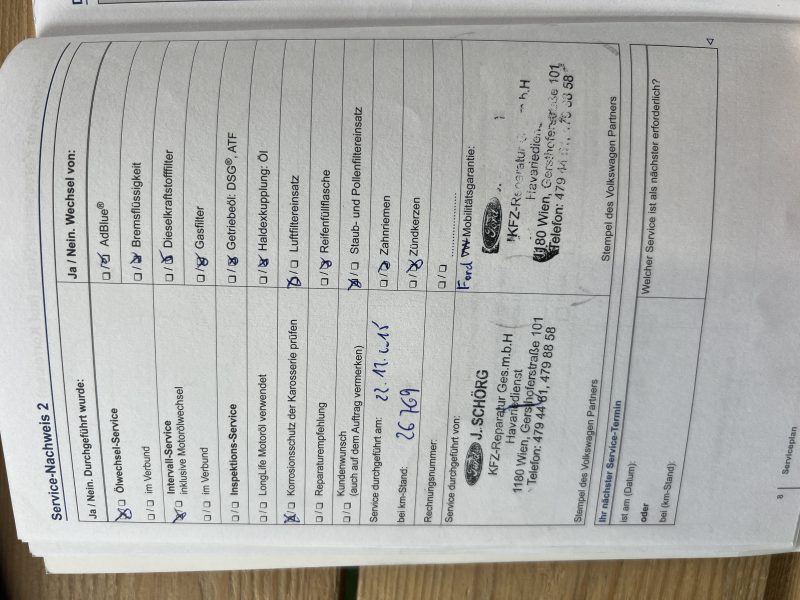 Service-Nachweis 2
Ja / Nein. Durchgeführt wurde:
Ölwechsel-Service
im Verbund
Intervall-Service
inklusive Motorölwechsel
im Verbund
Inspektions-Service
LongLife Motoröl verwendet
Korrosionsschutz der Karosserie prüfen
Reparaturempfehlung
Kundenwunsch
(auch auf dem Auftrag vermerken)
Service durchgeführt am: 22.12.2015
bei km-Stand: 26769
Rechnungsnummer:
Service durchgeführt von:
Ford J. SCHÖRG
KFZ-Reparatur Ges.m.b.H
Havariedienst
1180 Wien, Gersthoferstraße 101
Telefon: 479 44 61, 479 88 58
Stempel des Volkswagen Partners
Ja / Nein. Wechsel von:
AdBlue®
Bremsflüssigkeit
Dieselkraftstofffilter
Gasfilter
Getriebeöl: DSG®, ATF
Haldexkupplung: Öl
Luftfiltereinsatz
Reifenfüllflasche
Staub- und Pollenfiltereinsatz
Zahnriemen
Zündkerzen
Ford VW Mobilitätsgarantie:
Ford
KFZ-Reparatur
Havariedien
1180 Wien, Gersthoferstraße 101
Telefon: 479 44
Stempel des Volkswagen Partners
Ihr nächster Service-Termin
ist am (Datum):
oder
bei (km-Stand):
Welcher Service ist als nächster erforderlich?
8 Serviceplan